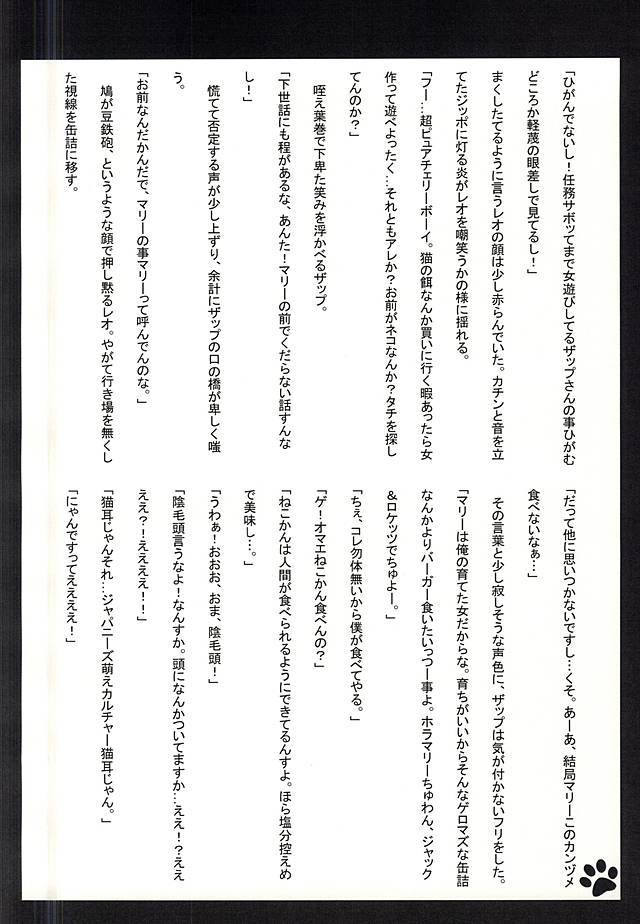 「ひがんでないし！任務サボッてまで女遊びしてるザップさんの事ひがむ
どころか軽蔑の眼差しで見てるし！」
まくしたてるように言うレオの顔は少し赤らんでいた。カチンと音を立
てたジッポに灯る炎がレオを嘲笑うかの様に揺れる。
「フー…超ピュアチェリーボーイ。猫の餌なんか買いに行く暇あったら女
作って遊べよったく…それともアレか？お前がネコなんか？タチを探し
てんのか？」
咥え葉巻で下卑た笑みを浮かべるザップ。
「下世話にも程があるな、あんた！マリーの前でくだらない話すんな
し！」
慌てて否定する声が少し上ずり、余計にザップの口の橋が卑しく嗤
う。
「お前なんだかんだで、マリーの事マリーって呼んでんのな。」
鳩が豆鉄砲、というような顔で押し黙るレオ。やがて行き場を無くし
た視線を缶詰に移す。
「だって他に思いつかないですし…くそ。あーあ、結局マリーこのカンヅメ
食べないなぁ…」
その言葉と少し寂しそうな声色に、ザップは気が付かないフリをした。
「マリーは俺の育てた女だからな。育ちがいいからそんなゲロマズな缶詰
なんかより、バーガー食いたいっつー事よ。ホラマリーちゅわん、ジャック
＆ロケッツでちゅよー。」
「ちぇ、コレ勿体無いから僕が食べてやる。」
「ゲ！オマエねこかん食べんの？」
「ねこかんは人間が食べられるようにできてるんすよ。ほら塩分控えめ
で美味し…。」
「うわぁ！おおお、おま、陰毛頭！」
「陰毛頭言うなよ！なんすか。頭になんかついてますか…ええ！？ええ
ええ？！ええええ！！」
「猫耳じゃんそれ…ジャパニーズ萌えカルチャー猫耳じゃん。」
「にゃんですってええええ！」